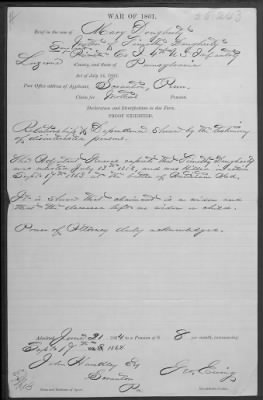 26,243
WAR OF 1861.
Brief in the case of Mary Dougherty
Mother of Timothy Dougherty
Private Co. I U.S. Infantry
Luzerne County, and State of Pennsylvania
Act of July 14, 1862.
Post Office address of Applicant, Scranton, Penn.
Claim for Mother's Pension.
Declaration and Identification in due Form.
PROOF EXHIBITED.
Relationship & Dependence shown by the testimony
of disinterested persons.
The Adjutant General reports that Timothy Dougherty
was enlisted July 1862, and was killed in action
Sept. 17th 1862 at the battle of Antietam Md.
It is shown that claimant is a widow and
that the deceased left no widow or child.
Power of Attorney duly acknowledged.
Admitted June 21 1864 to a Pension of $ 8 per month, commencing
Sept 17th 1862
John Handley Esq
Scranton
Pa